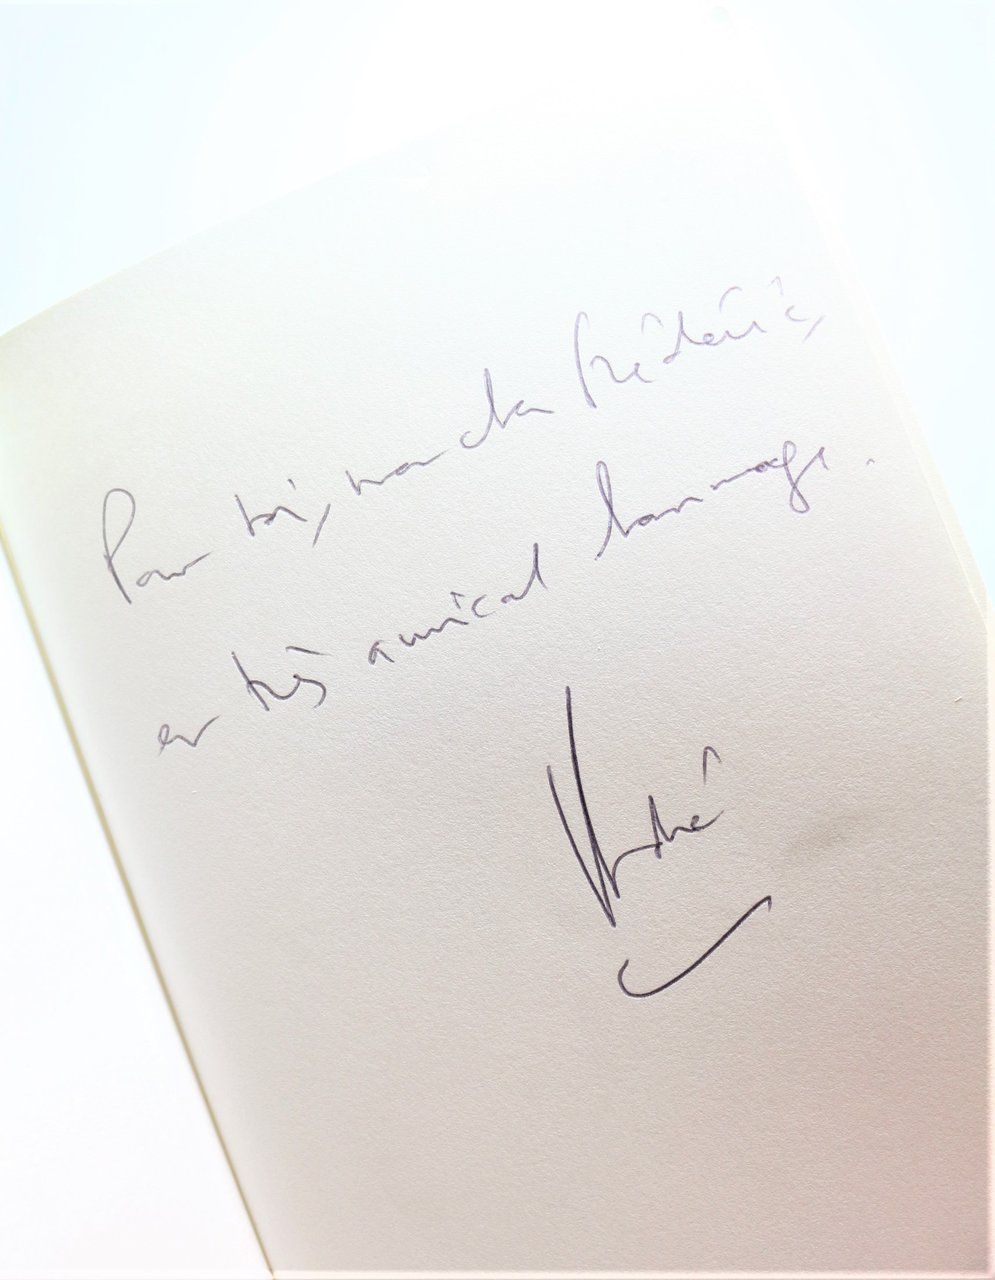 Pour toi, mon cher Frédéric,
en très amical hommage.